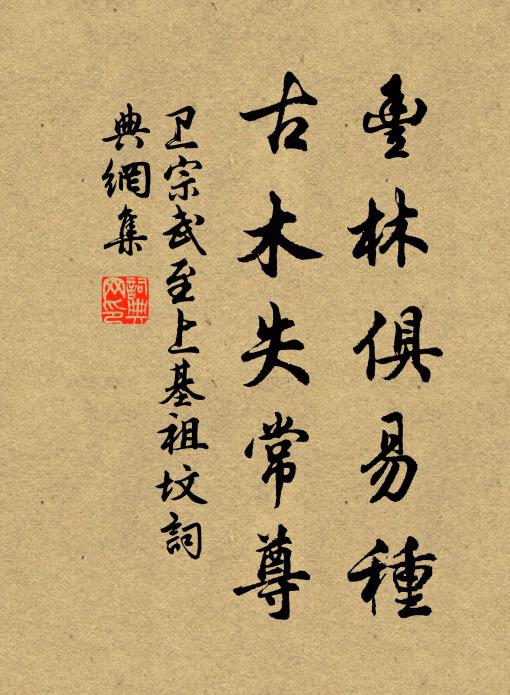 豐林俱易種
古木失常尊
卫宗武至上基祖坟詞
典網集
詞典
网印